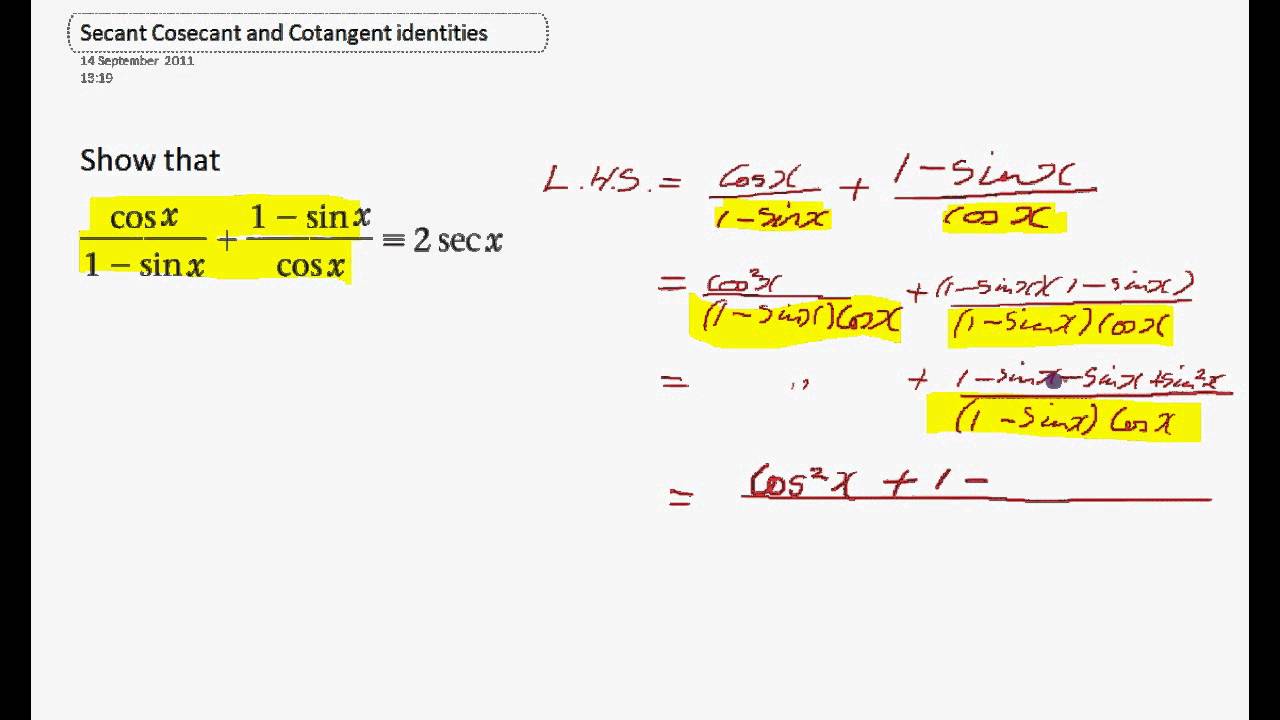 Secant Cosecant and Cotangent identities
14 September 2011
13:19
Show that
cos x / (1 − sin x) + (1 − sin x) / cos x ≡ 2 sec x
L.H.S. = cos x / (1 − sin x) + (1 − sin x) / cos x
= cos²x / ((1 − sin x) cos x) + (1 − sin x)(1 − sin x) / ((1 − sin x) cos x)
= ,, + (1 − sin x − sin x + sin²x) / ((1 − sin x) cos x)
= cos²x + 1 −